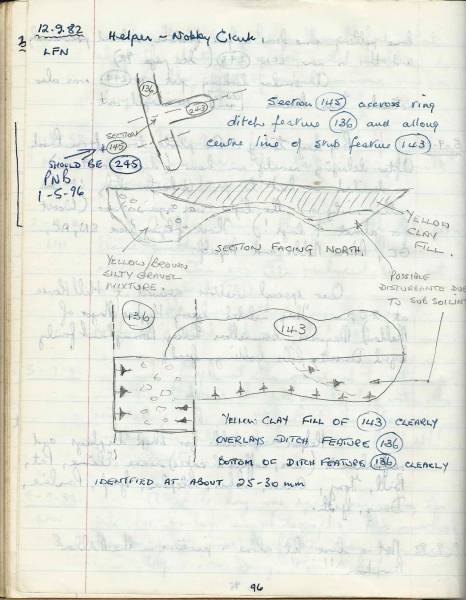 12.9.82
LFN
Helper - Nobby Clark.
136
243
SECTION
145
SHOULD BE 245
PNB
1-5-96
Section 145 accross ring
ditch feature 136 and along
centre line of stub feature 143
YELLOW
CLAY
FILL.
SECTION FACING NORTH.
YELLOW/BROWN
SILTY GRAVEL
MIXTURE.
POSSIBLE
DISTURBANCE DUE
TO SUB SOILING
136
143
YELLOW CLAY FILL OF 143 CLEARLY
OVERLAYS DITCH FEATURE 136
BOTTOM OF DITCH FEATURE 136 CLEARLY
IDENTIFIED AT ABOUT 25-30 mm
96